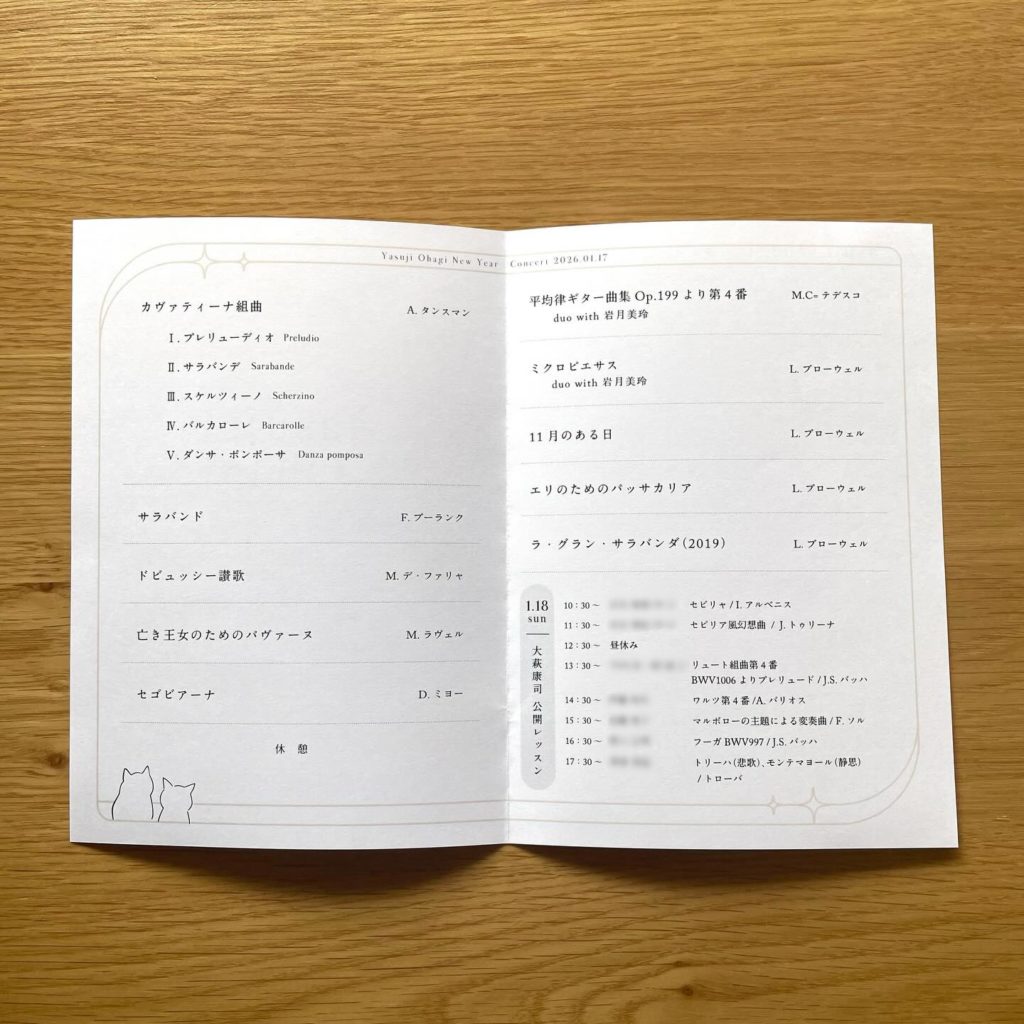 Yasuji Ohagi New Year Concert 2026.01.17
カヴァティーナ組曲 A. タンスマン
Ⅰ. プレリューディオ Preludio
Ⅱ. サラバンデ Sarabande
Ⅲ. スケルツィーノ Scherzino
Ⅳ. バルカローレ Barcarolle
Ⅴ. ダンサ・ポンポーサ Danza pomposa
サラバンド F. プーランク
ドビュッシー讃歌 M. デ・ファリャ
亡き王女のためのパヴァーヌ M. ラヴェル
セゴビアーナ D. ミヨー
休 憩
平均律ギター曲集 Op.199 より第4番 M.C= テデスコ
duo with 岩月美玲
ミクロピエサス L. ブローウェル
duo with 岩月美玲
11月のある日 L. ブローウェル
エリのためのパッサカリア L. ブローウェル
ラ・グラン・サラバンダ(2019) L. ブローウェル
1.18
sun
大萩康司 公開レッスン
10:30～ セビリャ / I. アルベニス
11:30～ セビリア風幻想曲 / J. トゥリーナ
12:30～ 昼休み
13:30～ リュート組曲第4番
BWV1006 よりプレリュード / J.S. バッハ
14:30～ ワルツ第4番 /A. バリオス
15:30～ マルボローの主題による変奏曲 / F. ソル
16:30～ フーガ BWV997 / J.S. バッハ
17:30～ トリーハ(悲歌)、モンテマヨール(静思)
/ トローバ